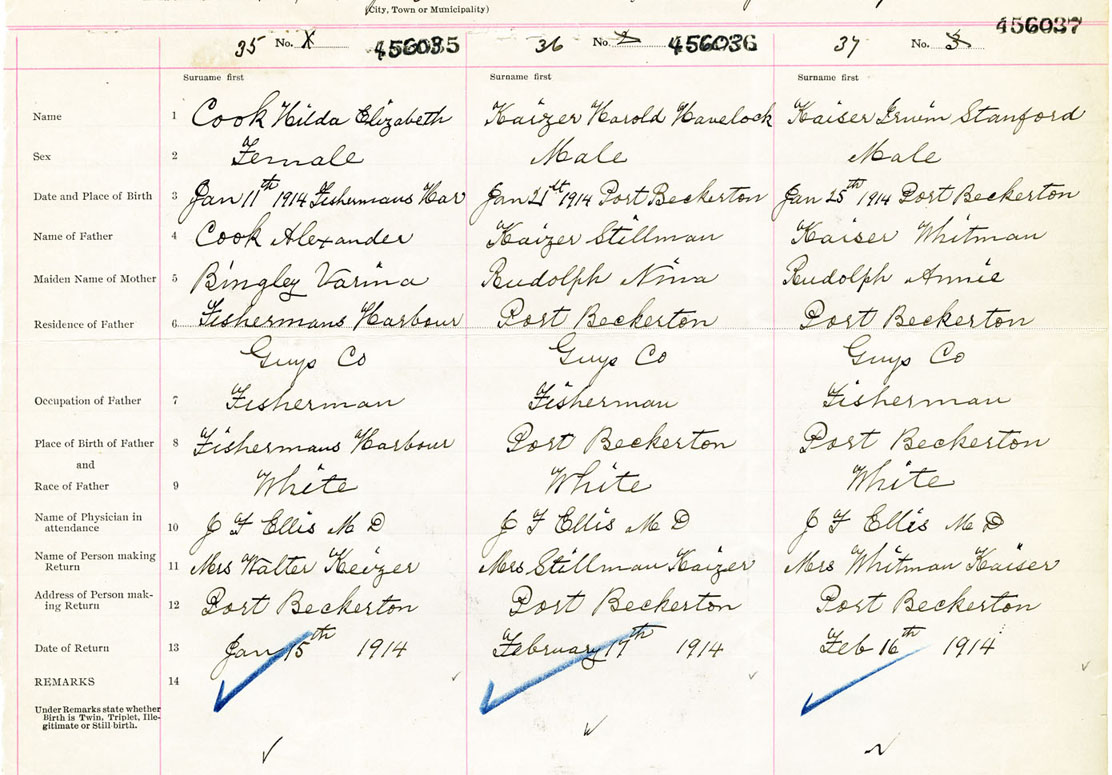 (City, Town or Municipality)
35 No. 1 456035 36 No. 2 456036 37 No. 3 456037
Surname first Surname first Surname first
Name 1 Cook Hilda Elizabeth Kaizer Harold Havelock Kaiser Irwin Stanford
Sex 2 Female Male Male
Date and Place of Birth 3 Jan 11th 1914 Fishermans Har Jan 21st 1914 Port Beckerton Jan 25th 1914 Port Beckerton
Name of Father 4 Cook Alexander Kaizer Stillman Kaiser Whitman
Maiden Name of Mother 5 Bingley Varina Rudolph Nina Rudolph Annie
Residence of Father 6 Fishermans Harbour Port Beckerton Port Beckerton
Guys Co Guys Co Guys Co
Occupation of Father 7 Fisherman Fisherman Fisherman
Place of Birth of Father 8 Fishermans Harbour Port Beckerton Port Beckerton
and
Race of Father 9 White White White
Name of Physician in
attendance 10 J F Ellis M D J F Ellis M D J F Ellis M D
Name of Person making
Return 11 Mrs Walter Keizer Mrs Stillman Kaizer Mrs Whitman Kaiser
Address of Person mak-
ing Return 12 Port Beckerton Port Beckerton Port Beckerton
Date of Return 13 Jan 15th 1914 February 17th 1914 Feb 16th 1914
REMARKS 14
Under Remarks state whether
Birth is Twin, Triplet, Ille-
gitimate or Still birth.